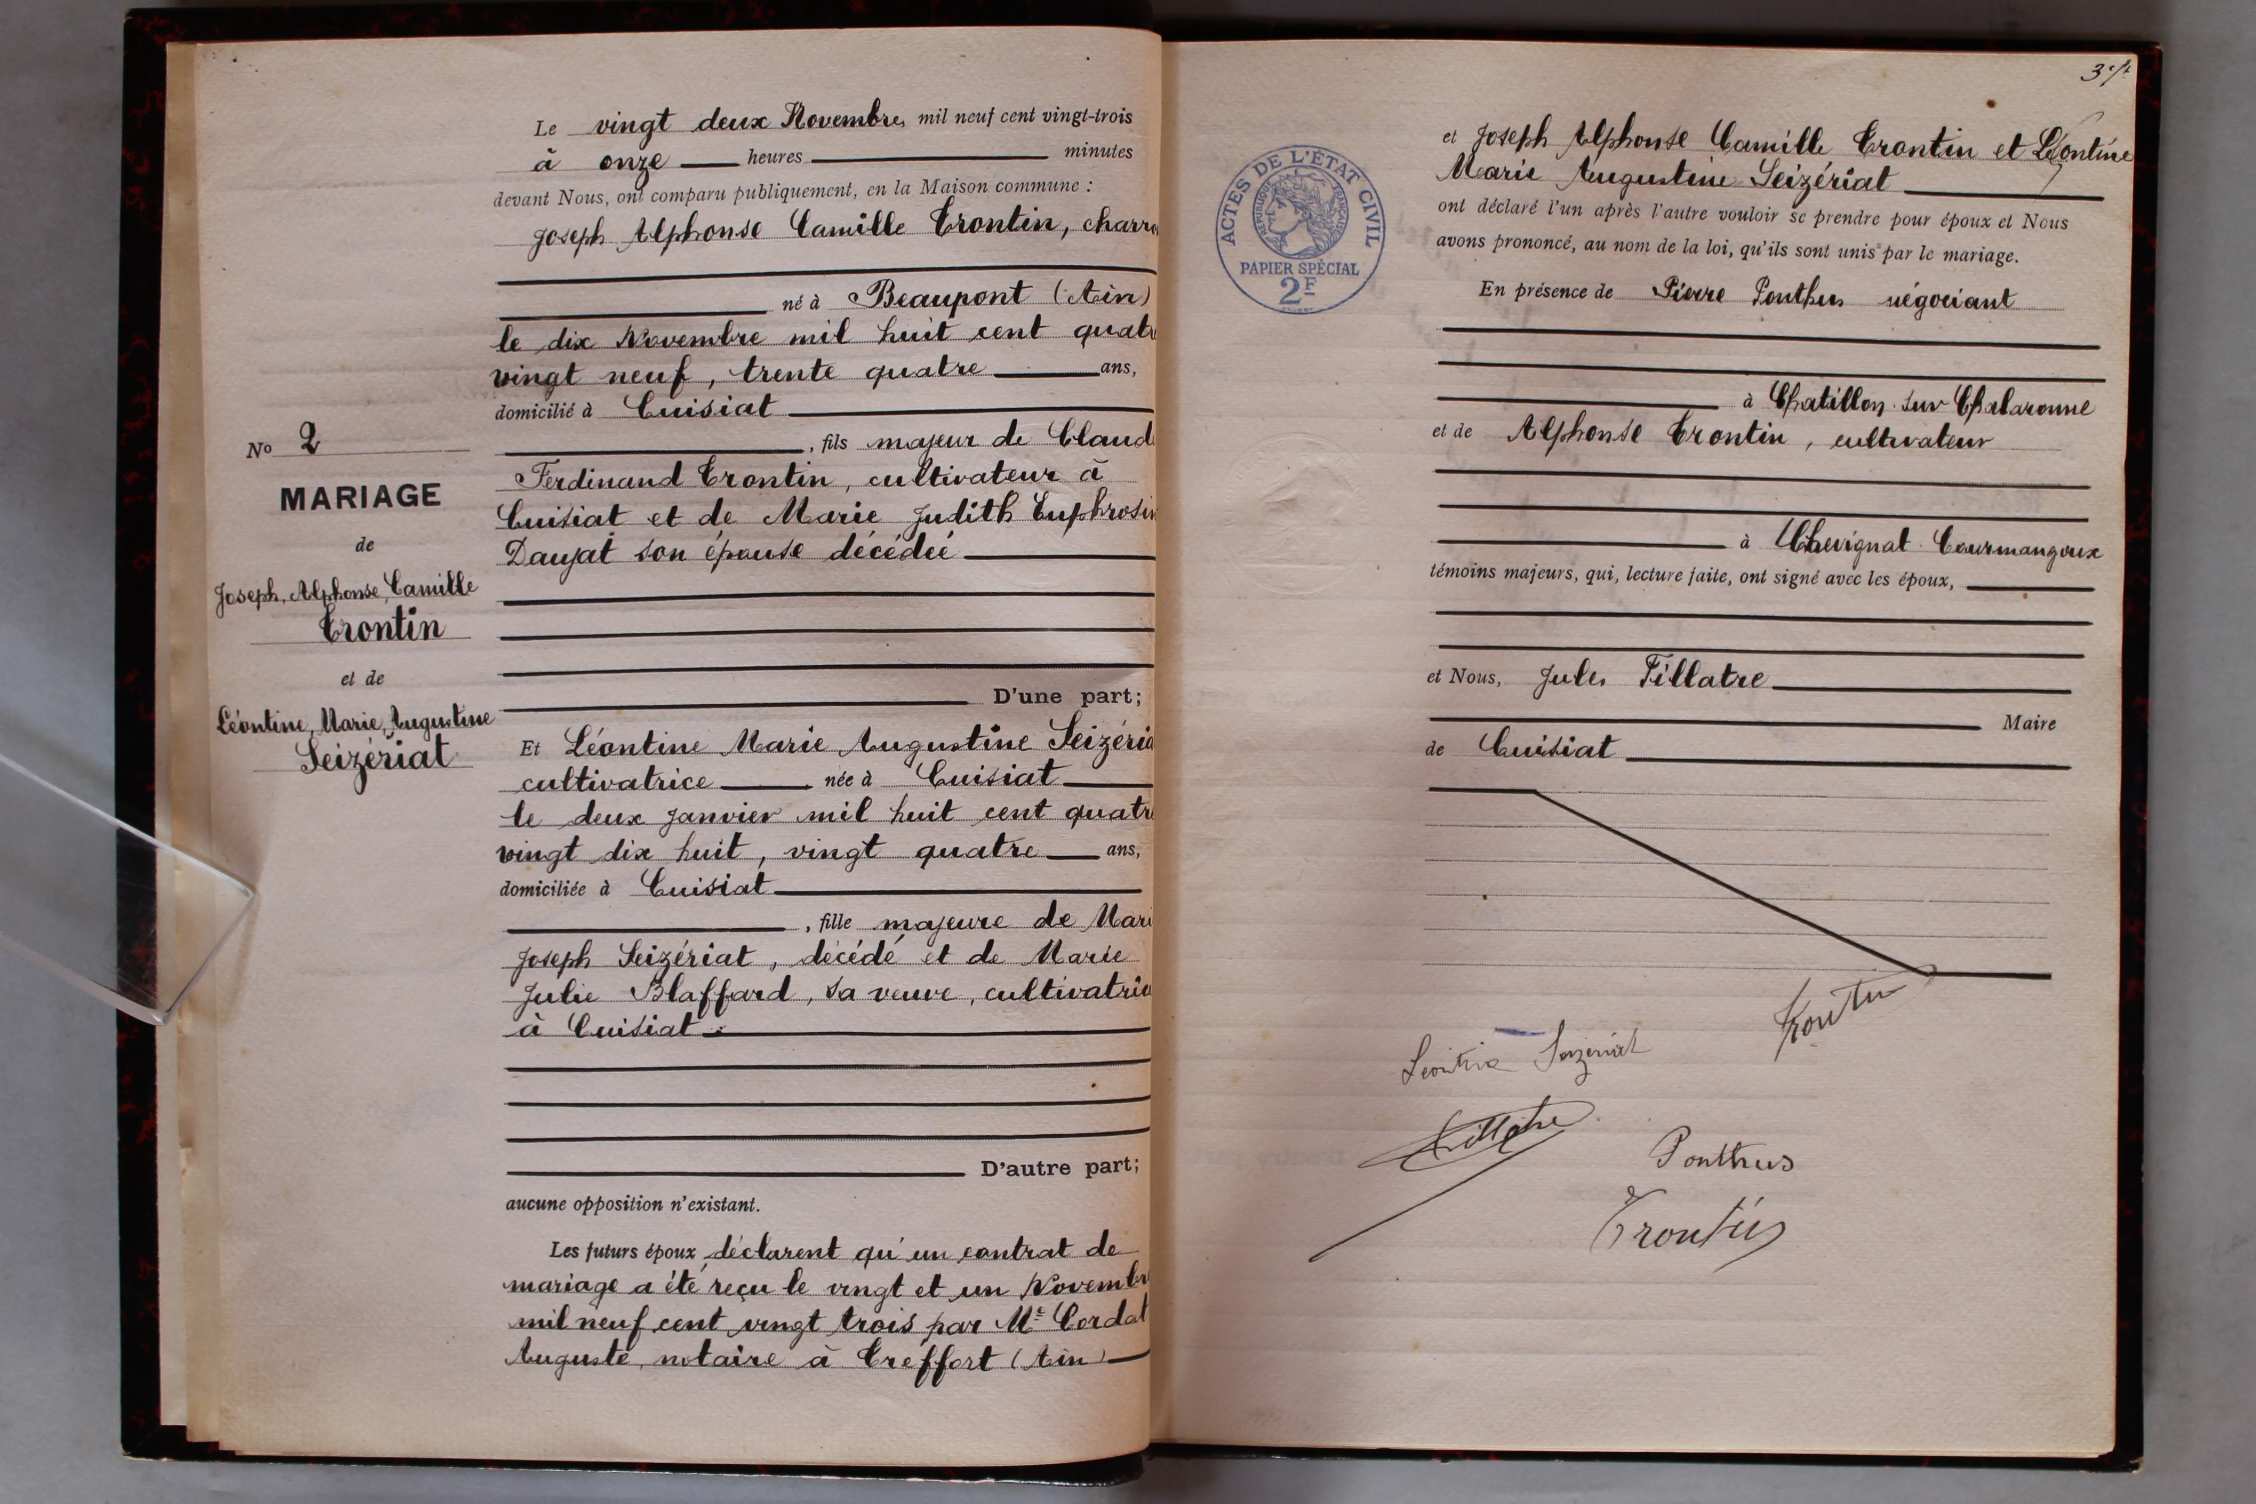 Le vingt deux Novembre mil neuf cent vingt-trois
à onze heures minutes
devant Nous, ont comparu publiquement, en la Maison commune :
Joseph Alphonse Camille Trontin, charro
né à Beaupont (Ain)
le dix Novembre mil huit cent quatr
vingt neuf, trente quatre ans,
domicilié à Cuisiat
No 2
, fils majeur de Claud
Ferdinand Trontin, cultivateur à
MARIAGE
Cuisiat et de Marie Judith Euphrosin
de
Daujat son épouse décédée
Joseph, Alphonse, Camille
Trontin
et de
D'une part;
Léontine, Marie, Augustine
Seizériat
Et Léontine Marie Augustine Seizéria
cultivatrice née à Cuisiat
le deux Janvier mil huit cent quatr
vingt dix huit, vingt quatre ans,
domiciliée à Cuisiat
, fille majeure de Mari
Joseph Seizériat, décédé et de Marie
Julie Blaffard, sa veuve, cultivatric
à Cuisiat.
D'autre part;
aucune opposition n'existant.
Les futurs époux déclarent qu'un contrat de
mariage a été reçu le vingt et un Novembr
mil neuf cent vingt trois par Me Cordat
Auguste, notaire à Treffort (Ain)
ACTES DE L'ÉTAT CIVIL
RÉPUBLIQUE FRANÇAISE
PAPIER SPÉCIAL
2F
et Joseph Alphonse Camille Trontin et Léontine
Marie Augustine Seizériat
ont déclaré l'un après l'autre vouloir se prendre pour époux et Nous
avons prononcé, au nom de la loi, qu'ils sont unis par le mariage.
En présence de Pierre Ponthus négociant
à Chatillon sur Chalaronne
et de Alphonse Trontin, cultivateur
à Chevignat Courmangoux
témoins majeurs, qui, lecture faite, ont signé avec les époux,
et Nous, Jules Fillatre
Maire
de Cuisiat
Trontin
Léontine Seizériat
Fillatre
Ponthus
Trontin